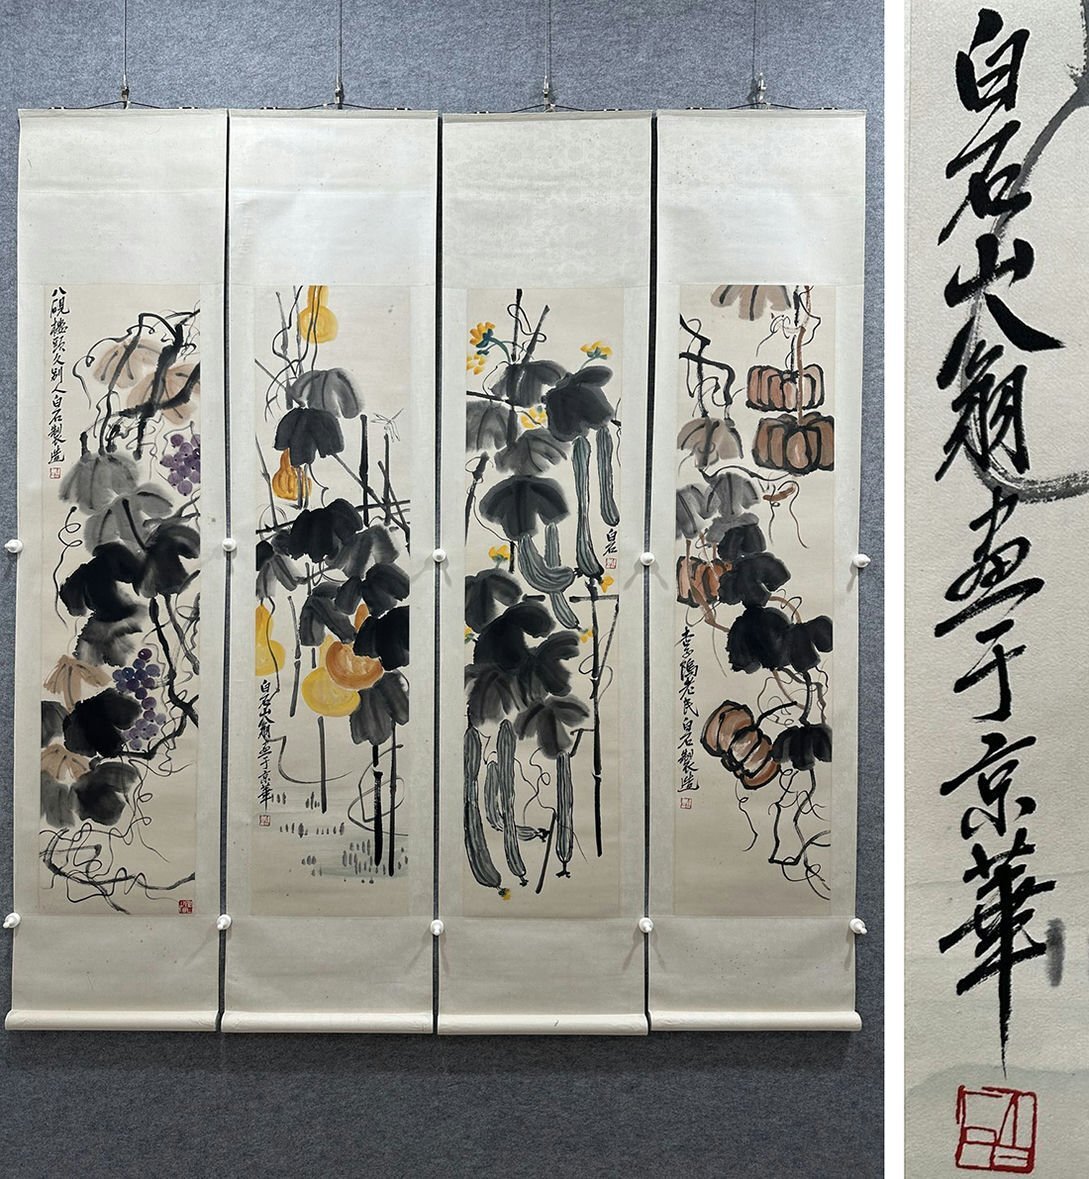 八硯樓頭久別人白石製造
白石山翁畫于京華
白石
杏子隖老民白石製造
白石山翁畫于京華